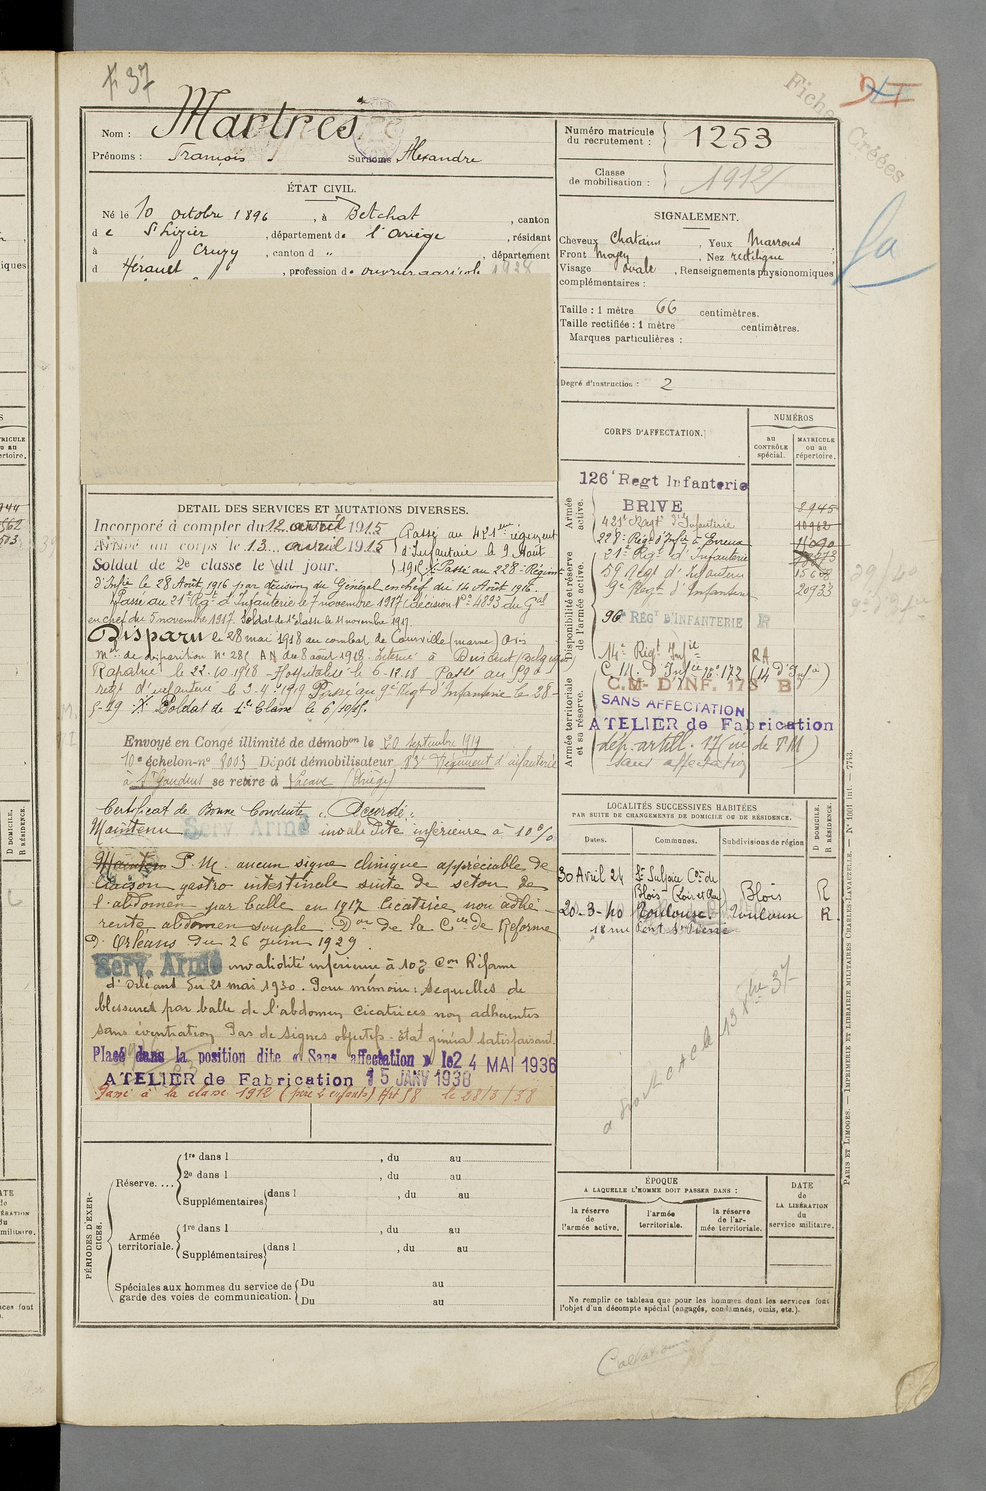 f 37
Fiches Créées
Nom : Martres
Prénoms : François Surnoms : Alexandre
Numéro matricule du recrutement : 1253
Classe de mobilisation : 1912
ÉTAT CIVIL.
Né le 10 octobre 1896, à Betchat, canton
de St Lizier, département de l'Ariège, résidant
à Cruzy, canton d " département
d Hérault, profession de ouvrier agricole
SIGNALEMENT.
Cheveux chatains, Yeux Marrons
Front moyen, Nez rectiligne
Visage ovale, Renseignements physionomiques
complémentaires :
Taille : 1 mètre 66 centimètres.
Taille rectifiée : 1 mètre centimètres.
Marques particulières :
Degré d'instruction : 2
CORPS D'AFFECTATION.
NUMÉROS
au CONTRÔLE spécial.
MATRICULE ou au répertoire.
Armée active.
126e Regt Infanterie
BRIVE 8945
421e Regt d'Infanterie 10962
228e Regt d'Infie à Evreux 11090
Disponibilité et réserve de l'armée active.
21e Rgt d'Infanterie
59 Régt d'Infanterie
9e Regt d'Infanterie 20933
96 REGt D'INFANTERIE R
14e Regt Infie RA
C.M. d'Infie No 172 (14 d'Infie)
C.M. D'INF. 173 B
Armée territoriale et sa réserve.
SANS AFFECTATION
ATELIER de Fabrication
sans affectation
DÉTAIL DES SERVICES ET MUTATIONS DIVERSES.
Incorporé à compter du 12 avril 1915
Arrivé au corps le 13 avril 1915
Soldat de 2e classe le dit jour.
Passé au 421eme régiment
d'Infanterie le 9 Août
1915 Passé au 228e Régiment
d'Infie le 28 Août 1916 par décision du Général en chef du 14 Août 1916.
Passé au 21e Rgt d'Infanterie le 7 novembre 1917 (décision No 4893 du Gal
en chef du 5 novembre 1917. Soldat de 1e classe le 11 novembre 1917.
Disparu le 28 mai 1918 au combat de Courville (marne) Avis
mel de disparition No 281 AN du 8 aout 1918. Interné à Dinant (Belgique)
Rapatrié le 22.10.1918 - Hospitalisé le 6.12.18 Passé au 59e
régt d'infanterie le 3-4-1919 Passé au 9e Régt d'Infanterie le 28-
5-19 X Soldat de 1ère Classe le 6/10/15.
Envoyé en Congé illimité de démobon le 20 Septembre 1919
10e échelon no 8003 Dépôt démobilisateur 83e Régiment d'infanterie
à St Gaudens se retire à Lacave (Ariège)
Certificat de Bonne Conduite : Accordé.
Maintenu Serv. Armé invalidité inférieure à 10%
P.M. aucun signe clinique appréciable de
liaison gastro intestinale suite de séton de
l'abdomen par balle en 1917 cicatrice non adhé-
rente, abdomen souple. Don de la Con de Réforme
d'Orléans du 26 Juin 1929.
Serv. Armé invalidité inférieure à 10% Con Réforme
d'Orléans du 21 mai 1930. Pour mémoire : séquelles de
blessures par balle de l'abdomen cicatrices non adhérentes
sans éventration Pas de signes objectifs. Etat général satisfaisant.
Placé dans la position dite « Sans affectation » le 24 MAI 1936
ATELIER de Fabrication 15 JANV 1938
Passé à la classe 1912 (père 2 enfants) Art 58 le 28/3/38
LOCALITÉS SUCCESSIVES HABITÉES
PAR SUITE DE CHANGEMENTS DE DOMICILE OU DE RÉSIDENCE.
Dates. Communes. Subdivisions de région D DOMICILE. R RÉSIDENCE.
30 Avril 24 St Sulpice Con de
Blois (Loir et Cher) Blois R
20-3-40 Toulouse. Toulouse R
18 rue
PÉRIODES D'EXERCICES.
Réserve.... 1re dans l , du au
2e dans l , du au
Supplémentaires dans l , du au
Armée territoriale. 1re dans l , du au
Supplémentaires dans l , du au
Spéciales aux hommes du service de garde des voies de communication. Du au
Du au
ÉPOQUE
A LAQUELLE L'HOMME DOIT PASSER DANS :
la réserve de l'armée active.
l'armée territoriale.
la réserve de l'armée territoriale.
DATE de LA LIBÉRATION du service militaire.
Ne remplir ce tableau que pour les hommes dont les services font
l'objet d'un décompte spécial (engagés, condamnés, omis, etc.).
PARIS ET LIMOGES. — IMPRIMERIE ET LIBRAIRIE MILITAIRES CHARLES-LAVAUZELLE. — No 1001 int. — 7743.